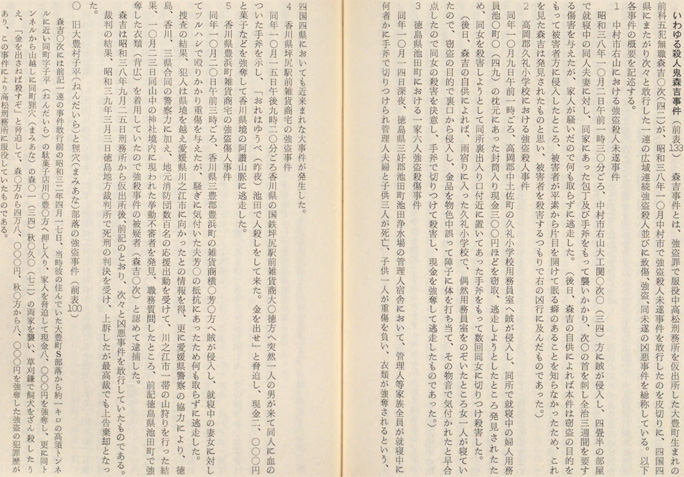 いわゆる殺人鬼森吉事件(前表33) 森吉事件とは、強盗罪で服役中高松刑務所を仮出所した大豊町生まれの
前科五犯無職森吉〇次(四二)が、昭和三八年一〇月中村市で強盗殺人未遂事件を敢行したのを皮切りに、四国四
県にまたがり次々と敢行した一連の広域連続強盗殺人並びに致傷、強盗、同未遂の凶悪事件を総称している。以下
各事件の概要を記述する。
1 中村市石山における強盗殺人未遂事件
昭和三八年一〇月二日午前一時三〇分ごろ、中村市石山大工関〇次〇(三四)方に賊が侵入し、四畳半の部屋
で就寝中の同人夫妻に対し、同家にあった包丁及び手斧をもって襲いかかり、次〇の首を刺し全治三週間を要す
る傷害を与えたが、家人が騒いだので何も取らずに逃走した。(後日、森吉の自供によれば本件は窃盗の目的を
もって被害者方に侵入したところ、被害者が平素から片目を開けて眠る癖のあることを知らなかったため、これ
を見た森吉は発見されたものと思い、被害者を殺害するつもりで右の凶行に及んだものであった。)
2 高岡郡久礼小学校における強盗殺人事件
同年一〇月九日午前一時ごろ、高岡郡中土佐町の久礼小学校用務員室へ賊が侵入し、同所で就寝中の婦人用務
員池〇町〇(四九)の枕元にあった封筒入り現金三〇〇円ほどを窃取、逃走しようとしたところ発見されたた
め、同女を殺害しようとして同所裏出入り口付近に置いてあった手斧をもって数回同女に切りつけ殺害した。
(後日、森吉の自供によれば、雨宿りに入った久礼小学校で、偶然用務員室をのぞいたところ女一人が寝てい
たので、窃盗の目的で裏口から侵入し、金品を物色中誤って障子に体を打ち当て、その物音で気付かれたと早合
点したので同女の殺害を決意し、手斧で切りつけて殺害し、現金を強奪して逃走したものであった。)
3 徳島県池田町における一家六人強盗殺傷事件
同年一〇月一四日深夜、徳島県三好郡池田町池田浄水場の管理人宿舎において、管理人等家族全員が就寝中に
何者かに手斧で切りつけられ管理人夫婦と子供三人が死亡、子供一人が重傷を負い、衣類が強奪されるという、
四国四県においても近来まれな大事件が発生した。
4 香川県坪尻駅前雑貨商宅の強盗事件
同年一〇月一五日午後九時二〇分ごろ香川県の国鉄坪尻駅前雑貨商大〇徳方へ突然一人の男が来て同人に血の
ついた手斧を示し、「おれはゆうべ(昨夜)池田で人殺しをして来た。金を出せ」と脅迫し、現金二、〇〇〇円
と菓子などを強奪して香川県境の阿讃山脈に逃走した。
5 香川県豊浜町雑貨商宅の強盗傷人事件
同年一〇月二〇日午前三時ごろ、香川県三豊郡豊浜町の雑貨商横〇芳〇方へ賊が侵入し、就寝中の妻女に対し
てツルハシで殴りかかり重傷を与えたが、騒ぎに気付いた夫芳〇の抵抗にあったため何も取らずに逃走した。
捜査の結果、犯人は県境を越え愛媛県川之江市に向かったとの情報を得、更に愛媛県警察の協力により、徳
島、香川、三県合同の警察力に加え、地元消防団数百名の応援出動を受けて、川之江市一帯の山狩りを行った結
果、一〇月二三日同市山の神社境内に現われた挙動不審者を発見、職務質問したところ、前記徳島県池田町で強
奪した衣類(背広)を着用していたので強殺事件の被疑者(森吉〇次)と認めて逮捕した。
森吉は昭和三八年九月二五日刑務所から仮出所後、前記のとおり、次々と凶悪事件を敢行していたものである。
裁判の結果、昭和三九年三月三日徳島地方裁判所で死刑の判決を受け、上訴したが最高裁でも上告棄却となっ
た。
〇 旧大豊村子平(ねんだいら)と狸穴(まみあな)部落の強盗事件(前表100)
森吉〇次には前記一連の事件敢行前の昭和三二年四月一七日、当時彼の住んでいた大豊町S部落から約一キロの高須トン
ネルに近い同町字子平(ねんだいら)の駄菓子店川〇豊〇方へ押し入り、家人を脅迫して現金八、〇〇〇円を強奪し、更に同ト
ンネルから山越しに同町狸穴(まみあな)の森〇一(三四)秋〇久〇(七二)の両家を襲い、草刈鎌で飼犬をざん殺した う
え「金を出せねば殺すぞ」と脅迫して、森〇方から四万八、〇〇〇円、秋〇方から八、〇〇〇円を強奪した強盗の犯罪歴が
あり、この事件により高松刑務所に服役していたものである。